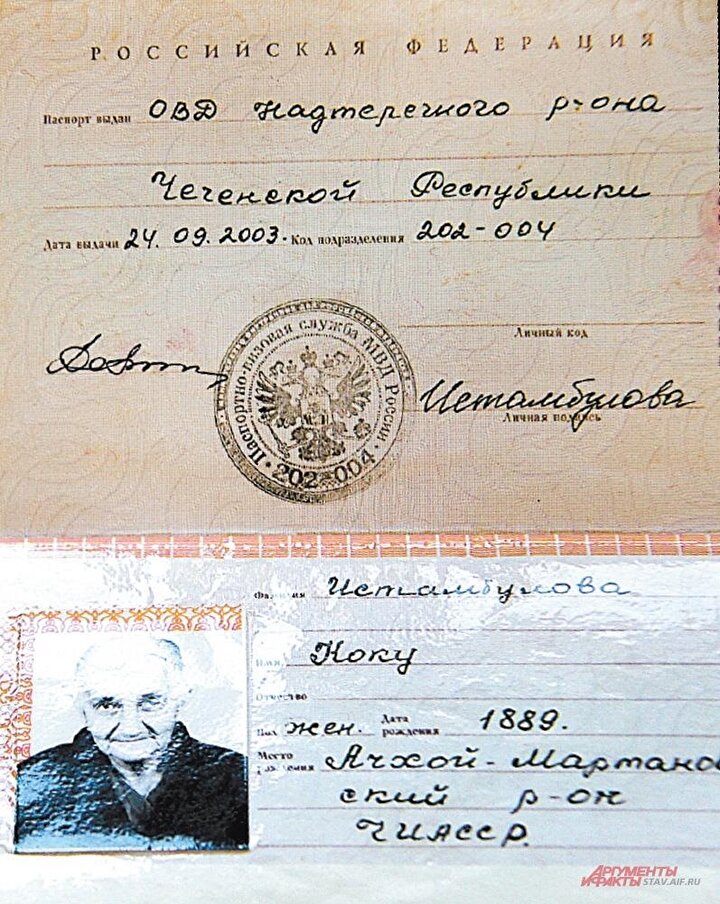 РОССИЙСКАЯ ФЕДЕРАЦИЯ
Паспорт выдан ОВД Надтеречного р-она
Чеченской Республики
Дата выдачи 24.09.2003. Код подразделения 202-004
Личный код
Паспортно-визовая служба МВД России
202-004
Истамбулова
Личная подпись
Фамилия Истамбулова
Имя Коку
Отчество
Пол жен. Дата рождения 1889.
Место рождения Ачхой-Мартанов
ский р-он
ЧИАССР.
АРГУМЕНТЫ
И ФАКТЫ STAV.AIF.RU